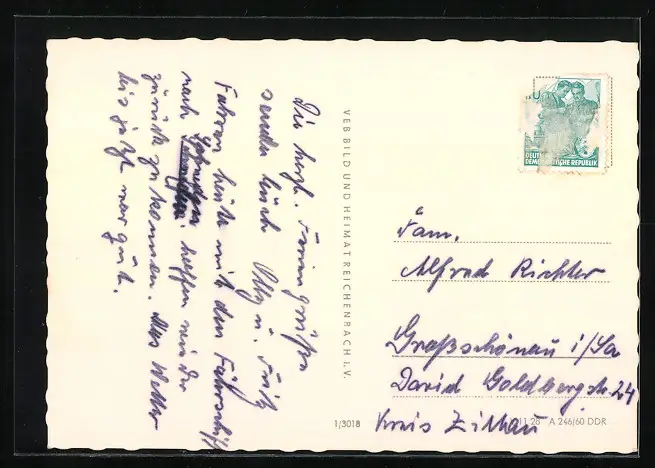 Die herzl. Feriengrüßen
senden Euch Olly u. Fritz
Fahren heute mit dem Fährschiff
nach
hoffen wieder
zurück zu kommen. Das Wetter
bis jetzt war gut.
VEB BILD UND HEIMAT REICHENBACH I. V.
DEUTSCHE
DEMOKRATISCHE REPUBLIK
Fam.
Alfred Richter
Großschönau i/Sa
David Goldbergstr. 24
Kreis Zittau
1/3018
A 246/60 DDR